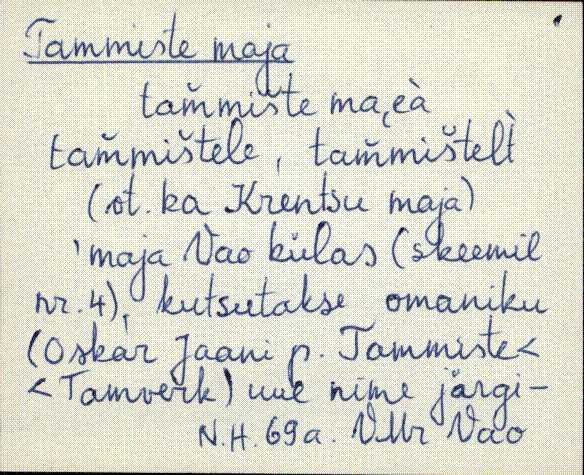 Tammiste maja
tam̆miš̆te ma,eà
tam̆mištele, tam̆mištelt̀
(ot. ka Krentsu maja)
'maja Vao külas (skeemil
nr. 4), kutsutakse omaniku
(Oskar Jaani p. Tammiste<
<Tamverk) uue nime järgi-
N.H. 69a. VMr Vao